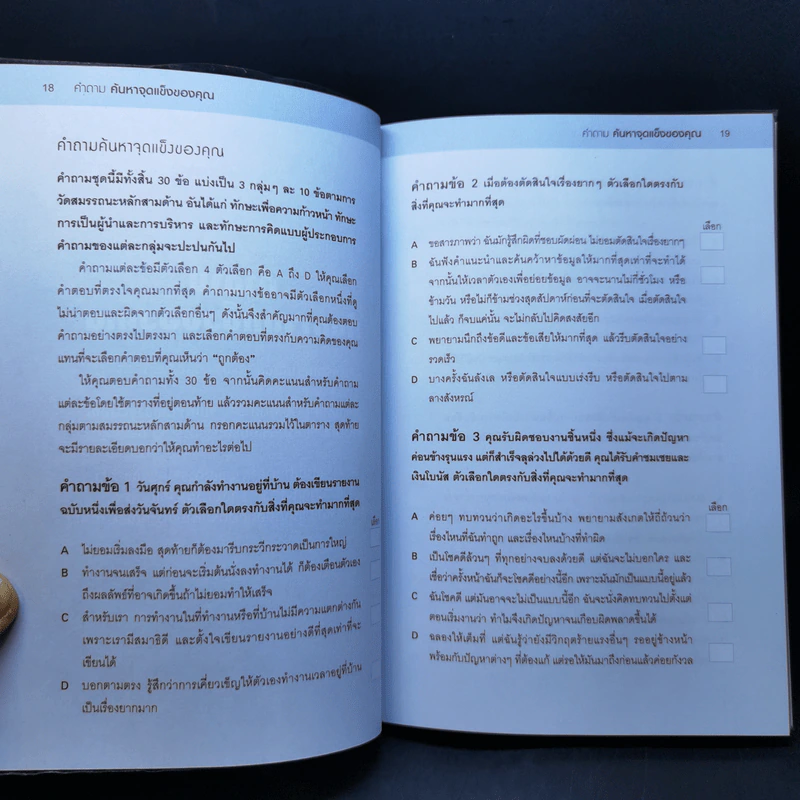 18 คำถาม ค้นหาจุดแข็งของคุณ
คำถามค้นหาจุดแข็งของคุณ
คำถามชุดนี้มีทั้งสิ้น 30 ข้อ แบ่งเป็น 3 กลุ่มๆ ละ 10 ข้อตามการ
วัดสมรรถนะหลักสามด้าน อันได้แก่ ทักษะเพื่อความก้าวหน้า ทักษะ
การเป็นผู้นำและการบริหาร และทักษะการคิดแบบผู้ประกอบการ
คำถามของแต่ละกลุ่มจะปะปนกันไป
คำถามแต่ละข้อมีตัวเลือก 4 ตัวเลือก คือ A ถึง D ให้คุณเลือก
คำตอบที่ตรงใจคุณมากที่สุด คำถามบางข้ออาจมีตัวเลือกหนึ่งที่ดู
ไม่น่าตอบและผิดจากตัวเลือกอื่นๆ ดังนั้นจึงสำคัญมากที่คุณต้องตอบ
คำถามอย่างตรงไปตรงมา และเลือกคำตอบที่ตรงกับความคิดของคุณ
แทนที่จะเลือกคำตอบที่คุณเห็นว่า “ถูกต้อง”
ให้คุณตอบคำถามทั้ง 30 ข้อ จากนั้นคิดคะแนนสำหรับคำถาม
แต่ละข้อโดยใช้ตารางที่อยู่ตอนท้าย แล้วรวมคะแนนสำหรับคำถามแต่ละ
กลุ่มตามสมรรถนะหลักสามด้าน กรอกคะแนนรวมไว้ในตาราง สุดท้าย
จะมีรายละเอียดบอกว่าให้คุณทำอะไรต่อไป
คำถามข้อ 1 วันศุกร์ คุณกำลังทำงานอยู่ที่บ้าน ต้องเขียนรายงาน
ฉบับหนึ่งเพื่อส่งวันจันทร์ ตัวเลือกใดตรงกับสิ่งที่คุณจะทำมากที่สุด
เลือก
A ไม่ยอมเริ่มลงมือ สุดท้ายก็ต้องมารีบกระวีกระวาดเป็นการใหญ่
B ทำงานจนเสร็จ แต่ก่อนจะเริ่มต้นนั่งลงทำงานได้ ก็ต้องเตือนตัวเอง
ถึงผลลัพธ์ที่อาจเกิดขึ้นถ้าไม่ยอมทำให้เสร็จ
C สำหรับเรา การทำงานในที่ทำงานหรือที่บ้านไม่มีความแตกต่างกัน
เพราะเรามีสมาธิดี และตั้งใจเขียนรายงานอย่างดีที่สุดเท่าที่จะ
เขียนได้
D บอกตามตรง รู้สึกว่าการเคี่ยวเข็ญให้ตัวเองทำงานเวลาอยู่ที่บ้าน
เป็นเรื่องยากมาก
คำถาม ค้นหาจุดแข็งของคุณ 19
คำถามข้อ 2 เมื่อต้องตัดสินใจเรื่องยากๆ ตัวเลือกใดตรงกับ
สิ่งที่คุณจะทำมากที่สุด
เลือก
A ขอสารภาพว่า ฉันมักรู้สึกผิดที่ชอบผัดผ่อน ไม่ยอมตัดสินใจเรื่องยากๆ
B ฉันฟังคำแนะนำและค้นคว้าหาข้อมูลให้มากที่สุดเท่าที่จะทำได้
จากนั้นให้เวลาตัวเองเพื่อย่อยข้อมูล อาจจะนานไม่กี่ชั่วโมง หรือ
ข้ามวัน หรือไม่ก็ข้ามช่วงสุดสัปดาห์ก่อนที่จะตัดสินใจ เมื่อตัดสินใจ
ไปแล้ว ก็จบแค่นั้น จะไม่กลับไปคิดสงสัยอีก
C พยายามนึกถึงข้อดีและข้อเสียให้มากที่สุด แล้วรีบตัดสินใจอย่าง
รวดเร็ว
D บางครั้งฉันลังเล หรือตัดสินใจแบบเร่งรีบ หรือตัดสินใจไปตาม
ลางสังหรณ์
คำถามข้อ 3 คุณรับผิดชอบงานชิ้นหนึ่ง ซึ่งแม้จะเกิดปัญหา
ค่อนข้างรุนแรง แต่ก็สำเร็จลุล่วงไปได้ด้วยดี คุณได้รับคำชมเชยและ
เงินโบนัส ตัวเลือกใดตรงกับสิ่งที่คุณจะทำมากที่สุด
เลือก
A ค่อยๆ ทบทวนว่าเกิดอะไรขึ้นบ้าง พยายามสังเกตให้ถี่ถ้วนว่า
เรื่องไหนที่ฉันทำถูก และเรื่องไหนบ้างที่ทำผิด
B เป็นโชคดีล้วนๆ ที่ทุกอย่างจบลงด้วยดี แต่ฉันจะไม่บอกใคร และ
เชื่อว่าครั้งหน้าฉันก็จะโชคดีอย่างนี้อีก เพราะฉันมักเป็นแบบนี้อยู่แล้ว
C ฉันโชคดี แต่มันอาจจะไม่เป็นแบบนี้อีก ฉันจะนั่งคิดทบทวนไปตั้งแต่
ตอนเริ่มงานว่า ทำไมจึงเกิดปัญหาจนเกือบผิดพลาดขึ้นได้
D ฉลองให้เต็มที่ แต่ฉันรู้ว่ายังมีวิกฤตร้ายแรงอื่นๆ รออยู่ข้างหน้า
พร้อมกับปัญหาต่างๆ ที่ต้องแก้ แต่รอให้มันมาถึงก่อนแล้วค่อยกังวล